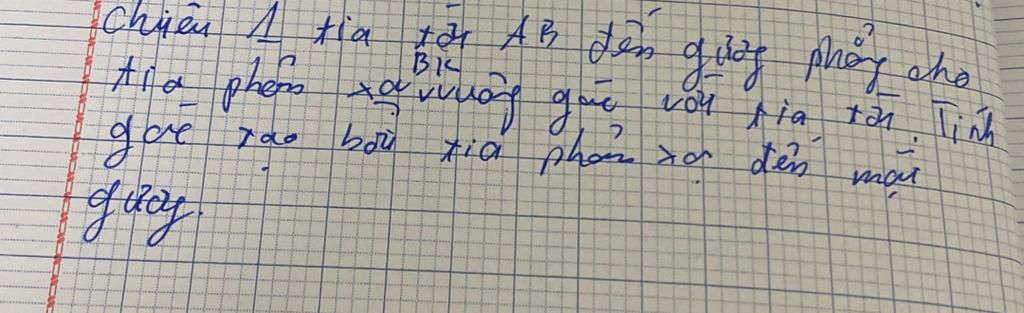 chiếu 1 tia tới AB đến gương phẳng cho
tia phản xạ BK vuông góc với tia tới. Tính
góc tạo bởi tia phản xạ đến mặt
gương.